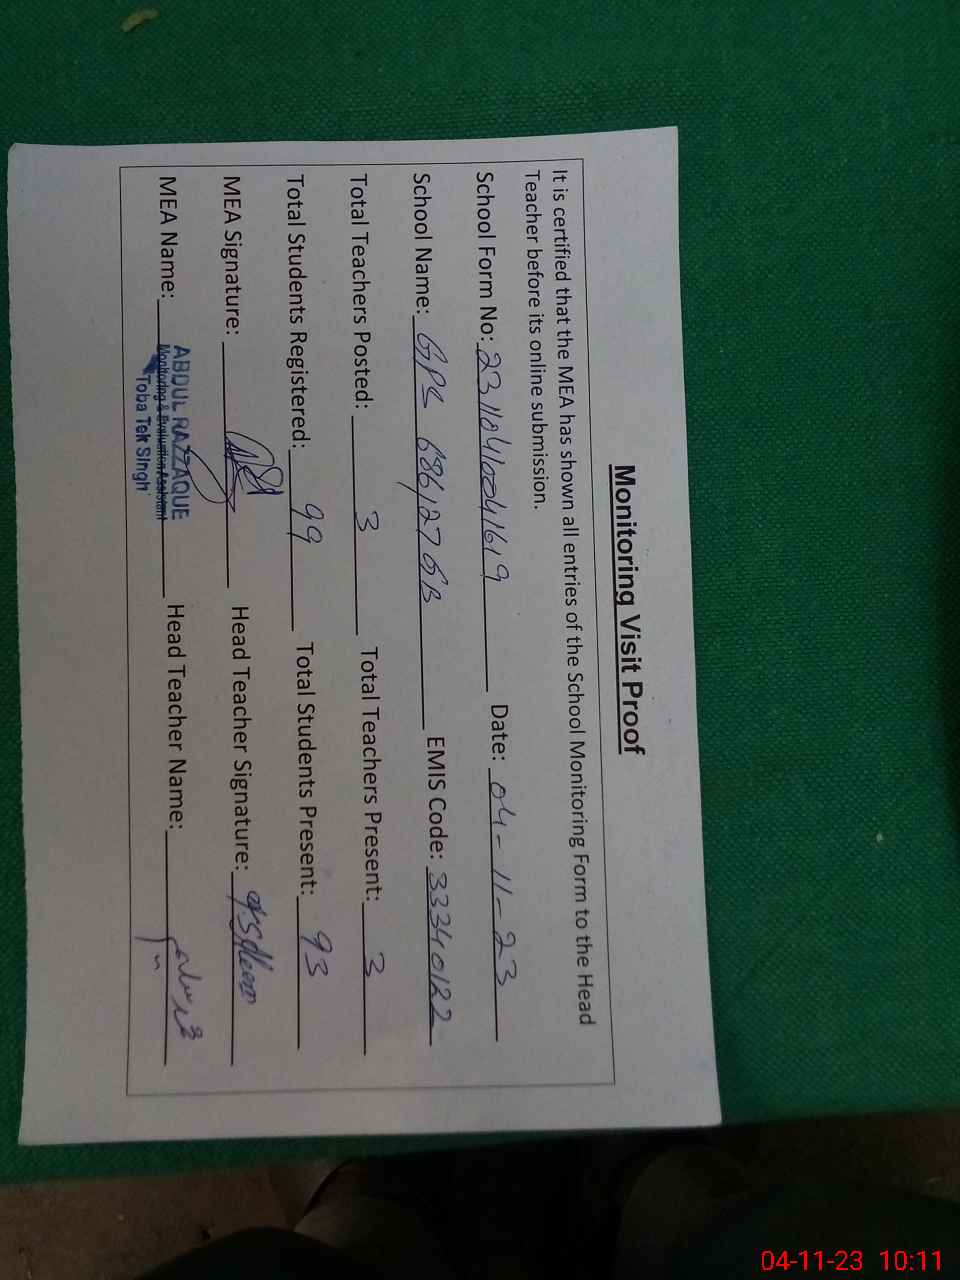 Monitoring Visit Proof
It is certified that the MEA has shown all entries of the School Monitoring Form to the Head
Teacher before its online submission.
School Form No: 23110410041619 Date: 04-11-23
School Name: GPS 686/27 GB EMIS Code: 33340122
Total Teachers Posted: 3 Total Teachers Present: 3
Total Students Registered: 99 Total Students Present: 93
MEA Signature: Head Teacher Signature:
MEA Name: ABDUL RAZZAQUE Head Teacher Name:
Monitoring & Evaluation Assistant
Toba Tek Singh
04-11-23 10:11